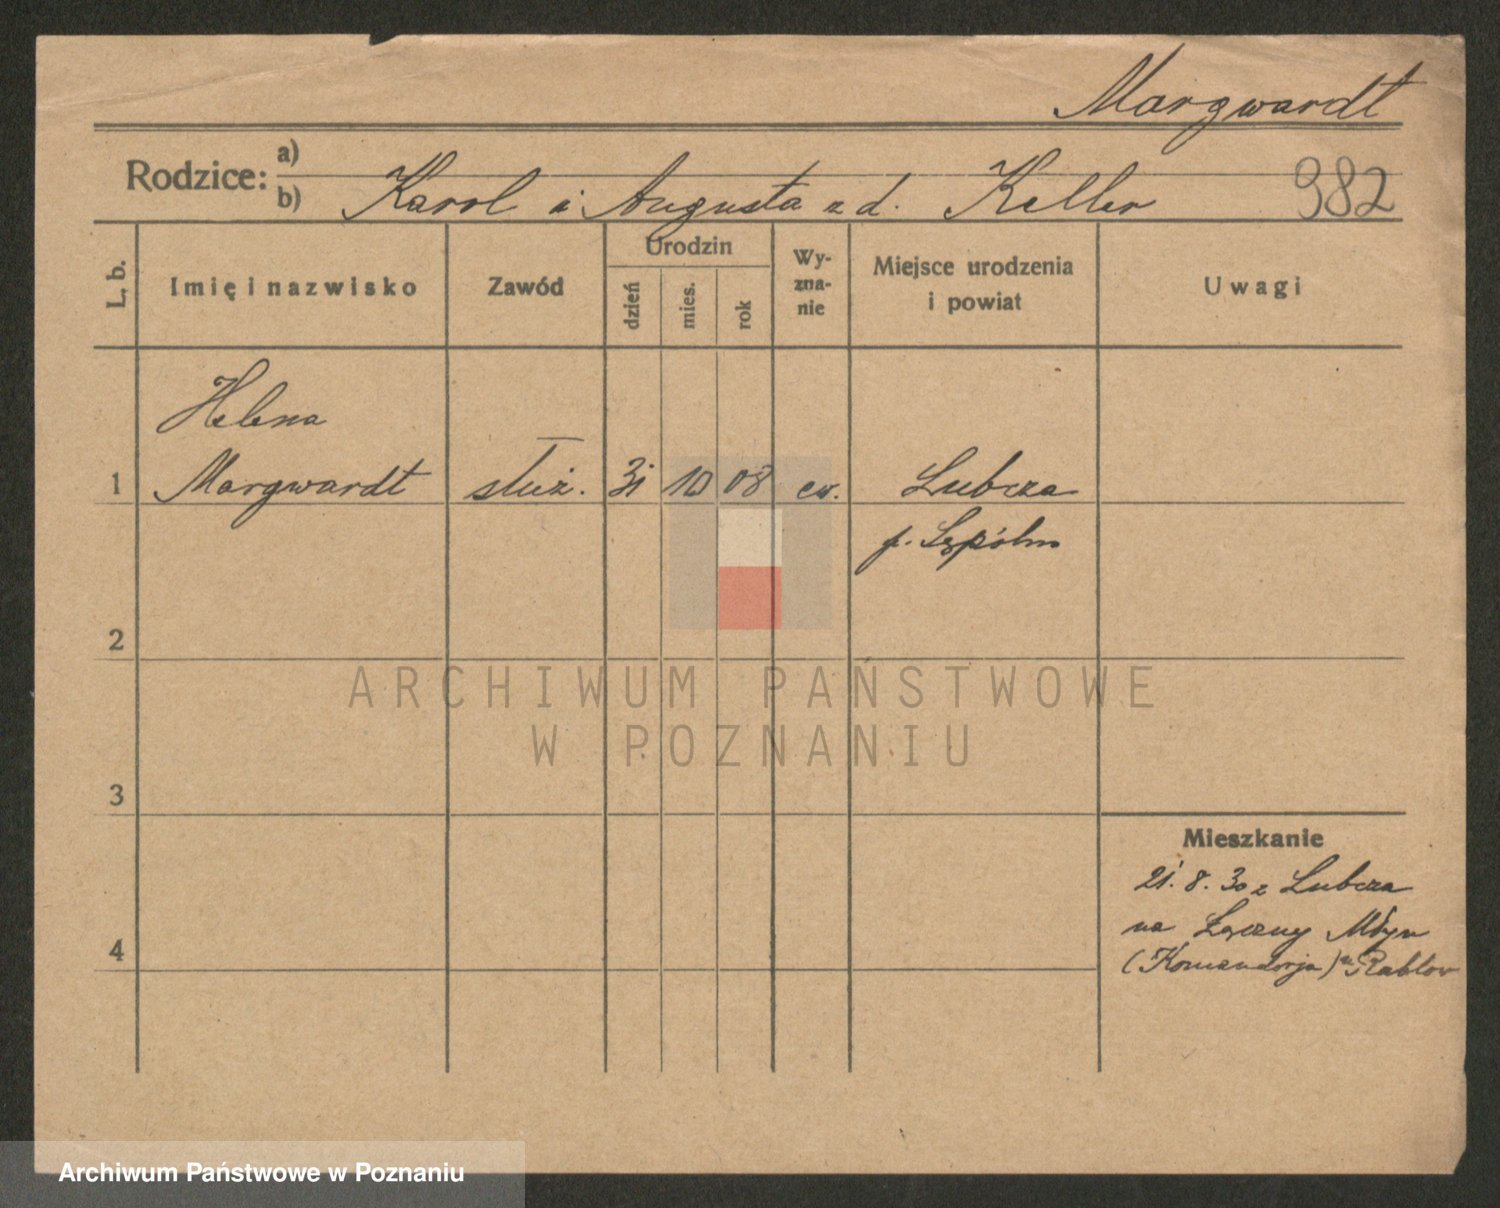 Margwardt
Rodzice: a)
b) Karol i Augusta z d. Keller 982
L. b.
Imię i nazwisko
Zawód
Urodzin
dzień
mies.
rok
Wy-
zna-
nie
Miejsce urodzenia
i powiat
Uwagi
Helena
1 Margwardt służ. 31 10 08 ew. Lubcza
p. Sępólno
2
ARCHIWUM PAŃSTWOWE
W POZNANIU
3
Mieszkanie
21. 8. 30 z Lubcza
na Łączny Młyn
4
(Komandorja) u Rabbow
Archiwum Państwowe w Poznaniu